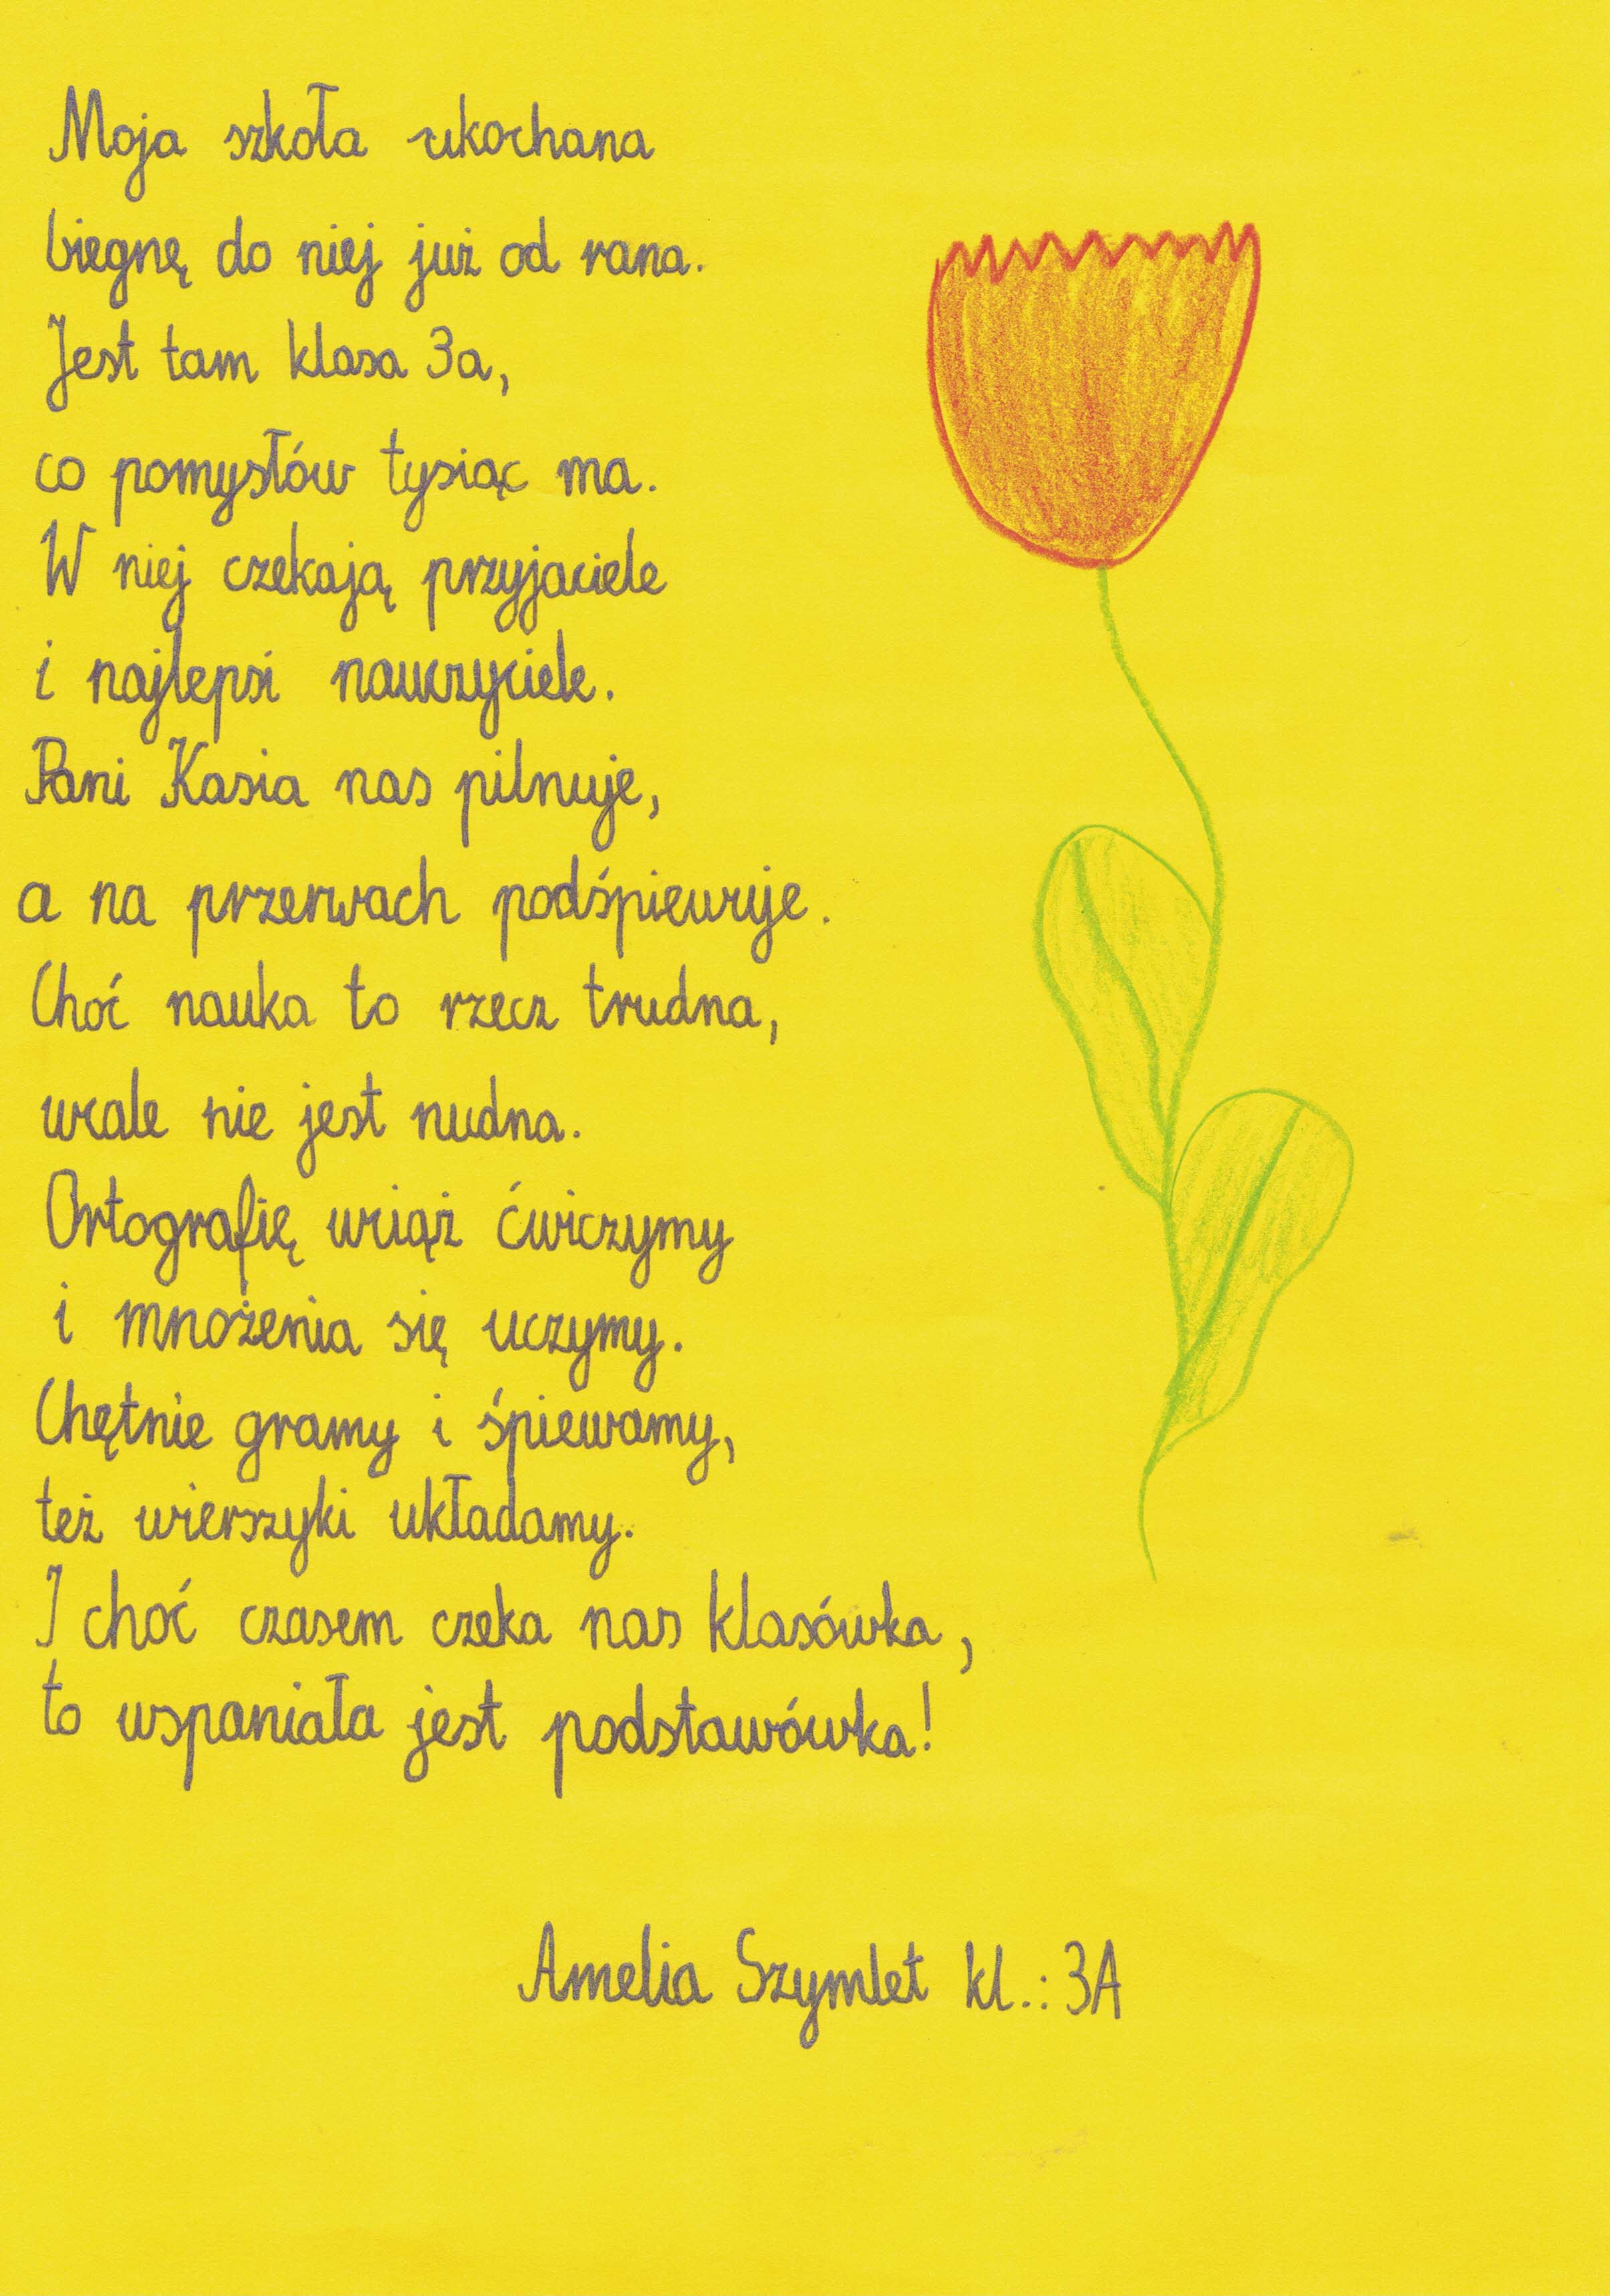 Moja szkoła ukochana
biegnę do niej już od rana.
Jest tam klasa 3a,
co pomysłów tysiąc ma.
W niej czekają przyjaciele
i najlepsi nauczyciele.
Pani Kasia nas pilnuje,
a na przerwach podśpiewuje.
Choć nauka to rzecz trudna,
wcale nie jest nudna.
Ortografię wciąż ćwiczymy
i mnożenia się uczymy.
Chętnie gramy i śpiewamy,
też wierszyki układamy.
I choć czasem czeka nas klasówka,
to wspaniała jest podstawówka!
Amelia Szymlet kl.: 3A